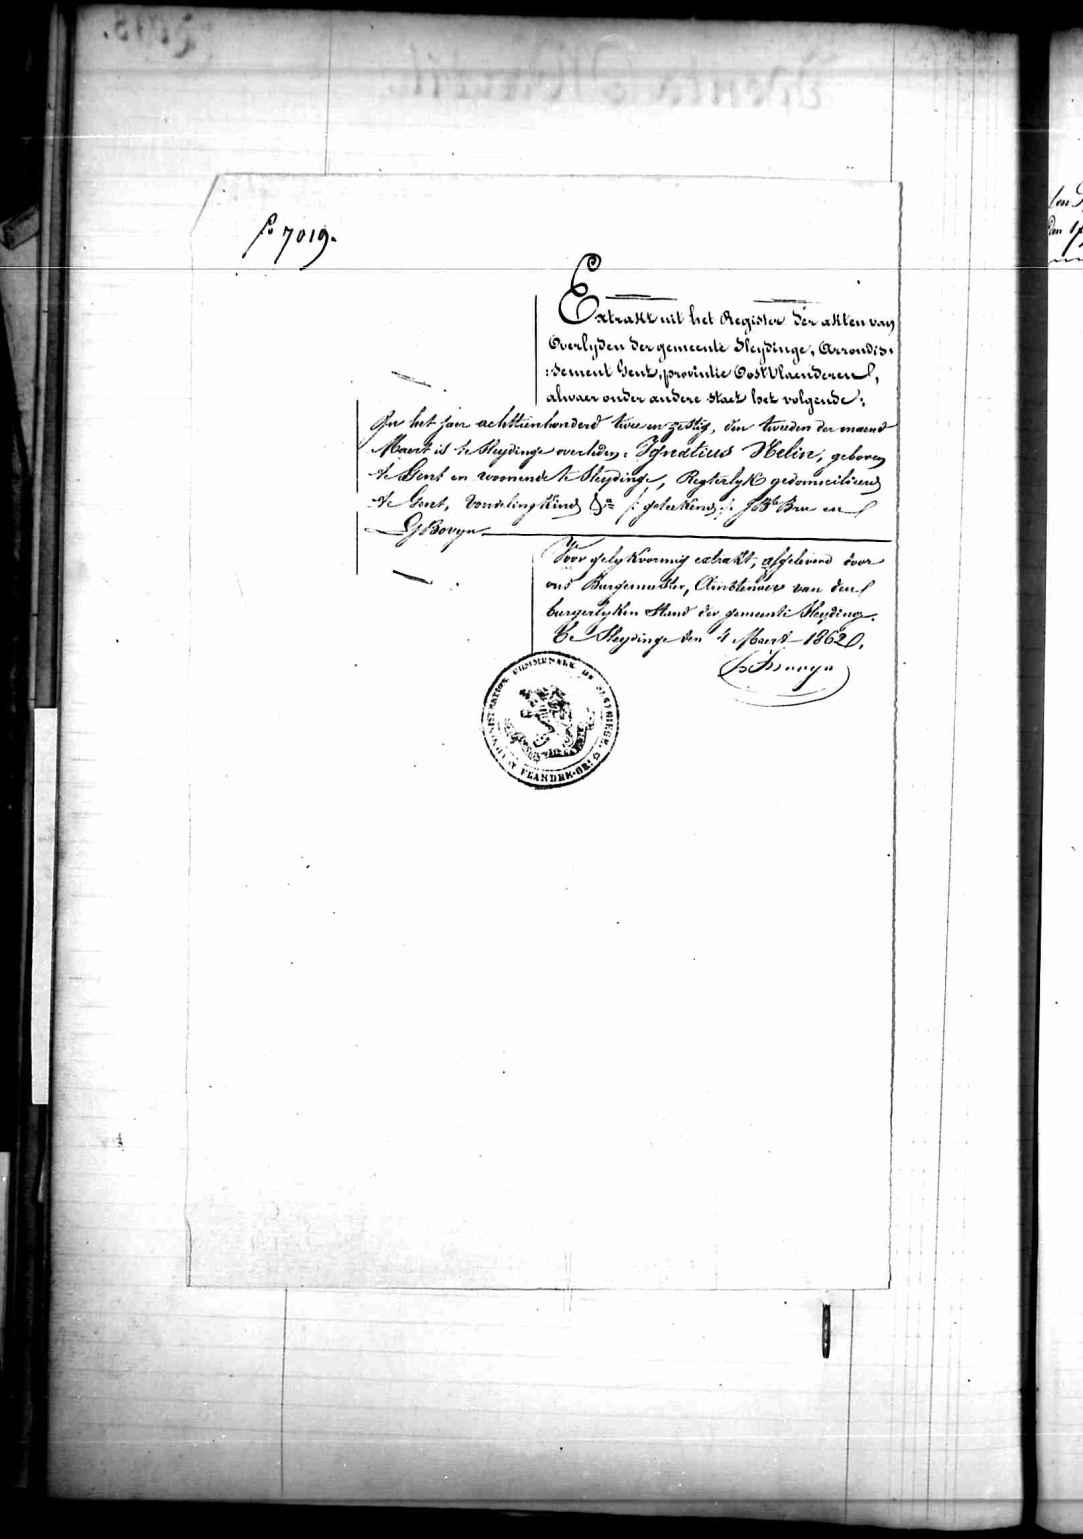 fo 7019.
Extrakt uit het Register der akten van
Overlyden der gemeente Sleydinge, Arrondis-
:sement Gent, provintie Oostvlaenderen,
alwaer onder andere staet het volgende:
In het jaer achttienhonderd twee en zestig, den tweeden der maend
Maert is te Sleydinge overleden: Ignatius Helin, geboren
te Gent en woonende te Sleydinge, Regterlyk gedomicilieerd
te Gent, Vondelingkind &a /: geteekend :/ Bru en
Bovyn
Voor gelykvormig extrakt, afgeleverd door
ons Burgemeester, Ambtenaer van den
burgerlyken Stand der gemeente Sleydinge.
Te Sleydinge den 4 Maert 1862.
ADMINISTRATION COMMUNALE DE FLANDRE-OR